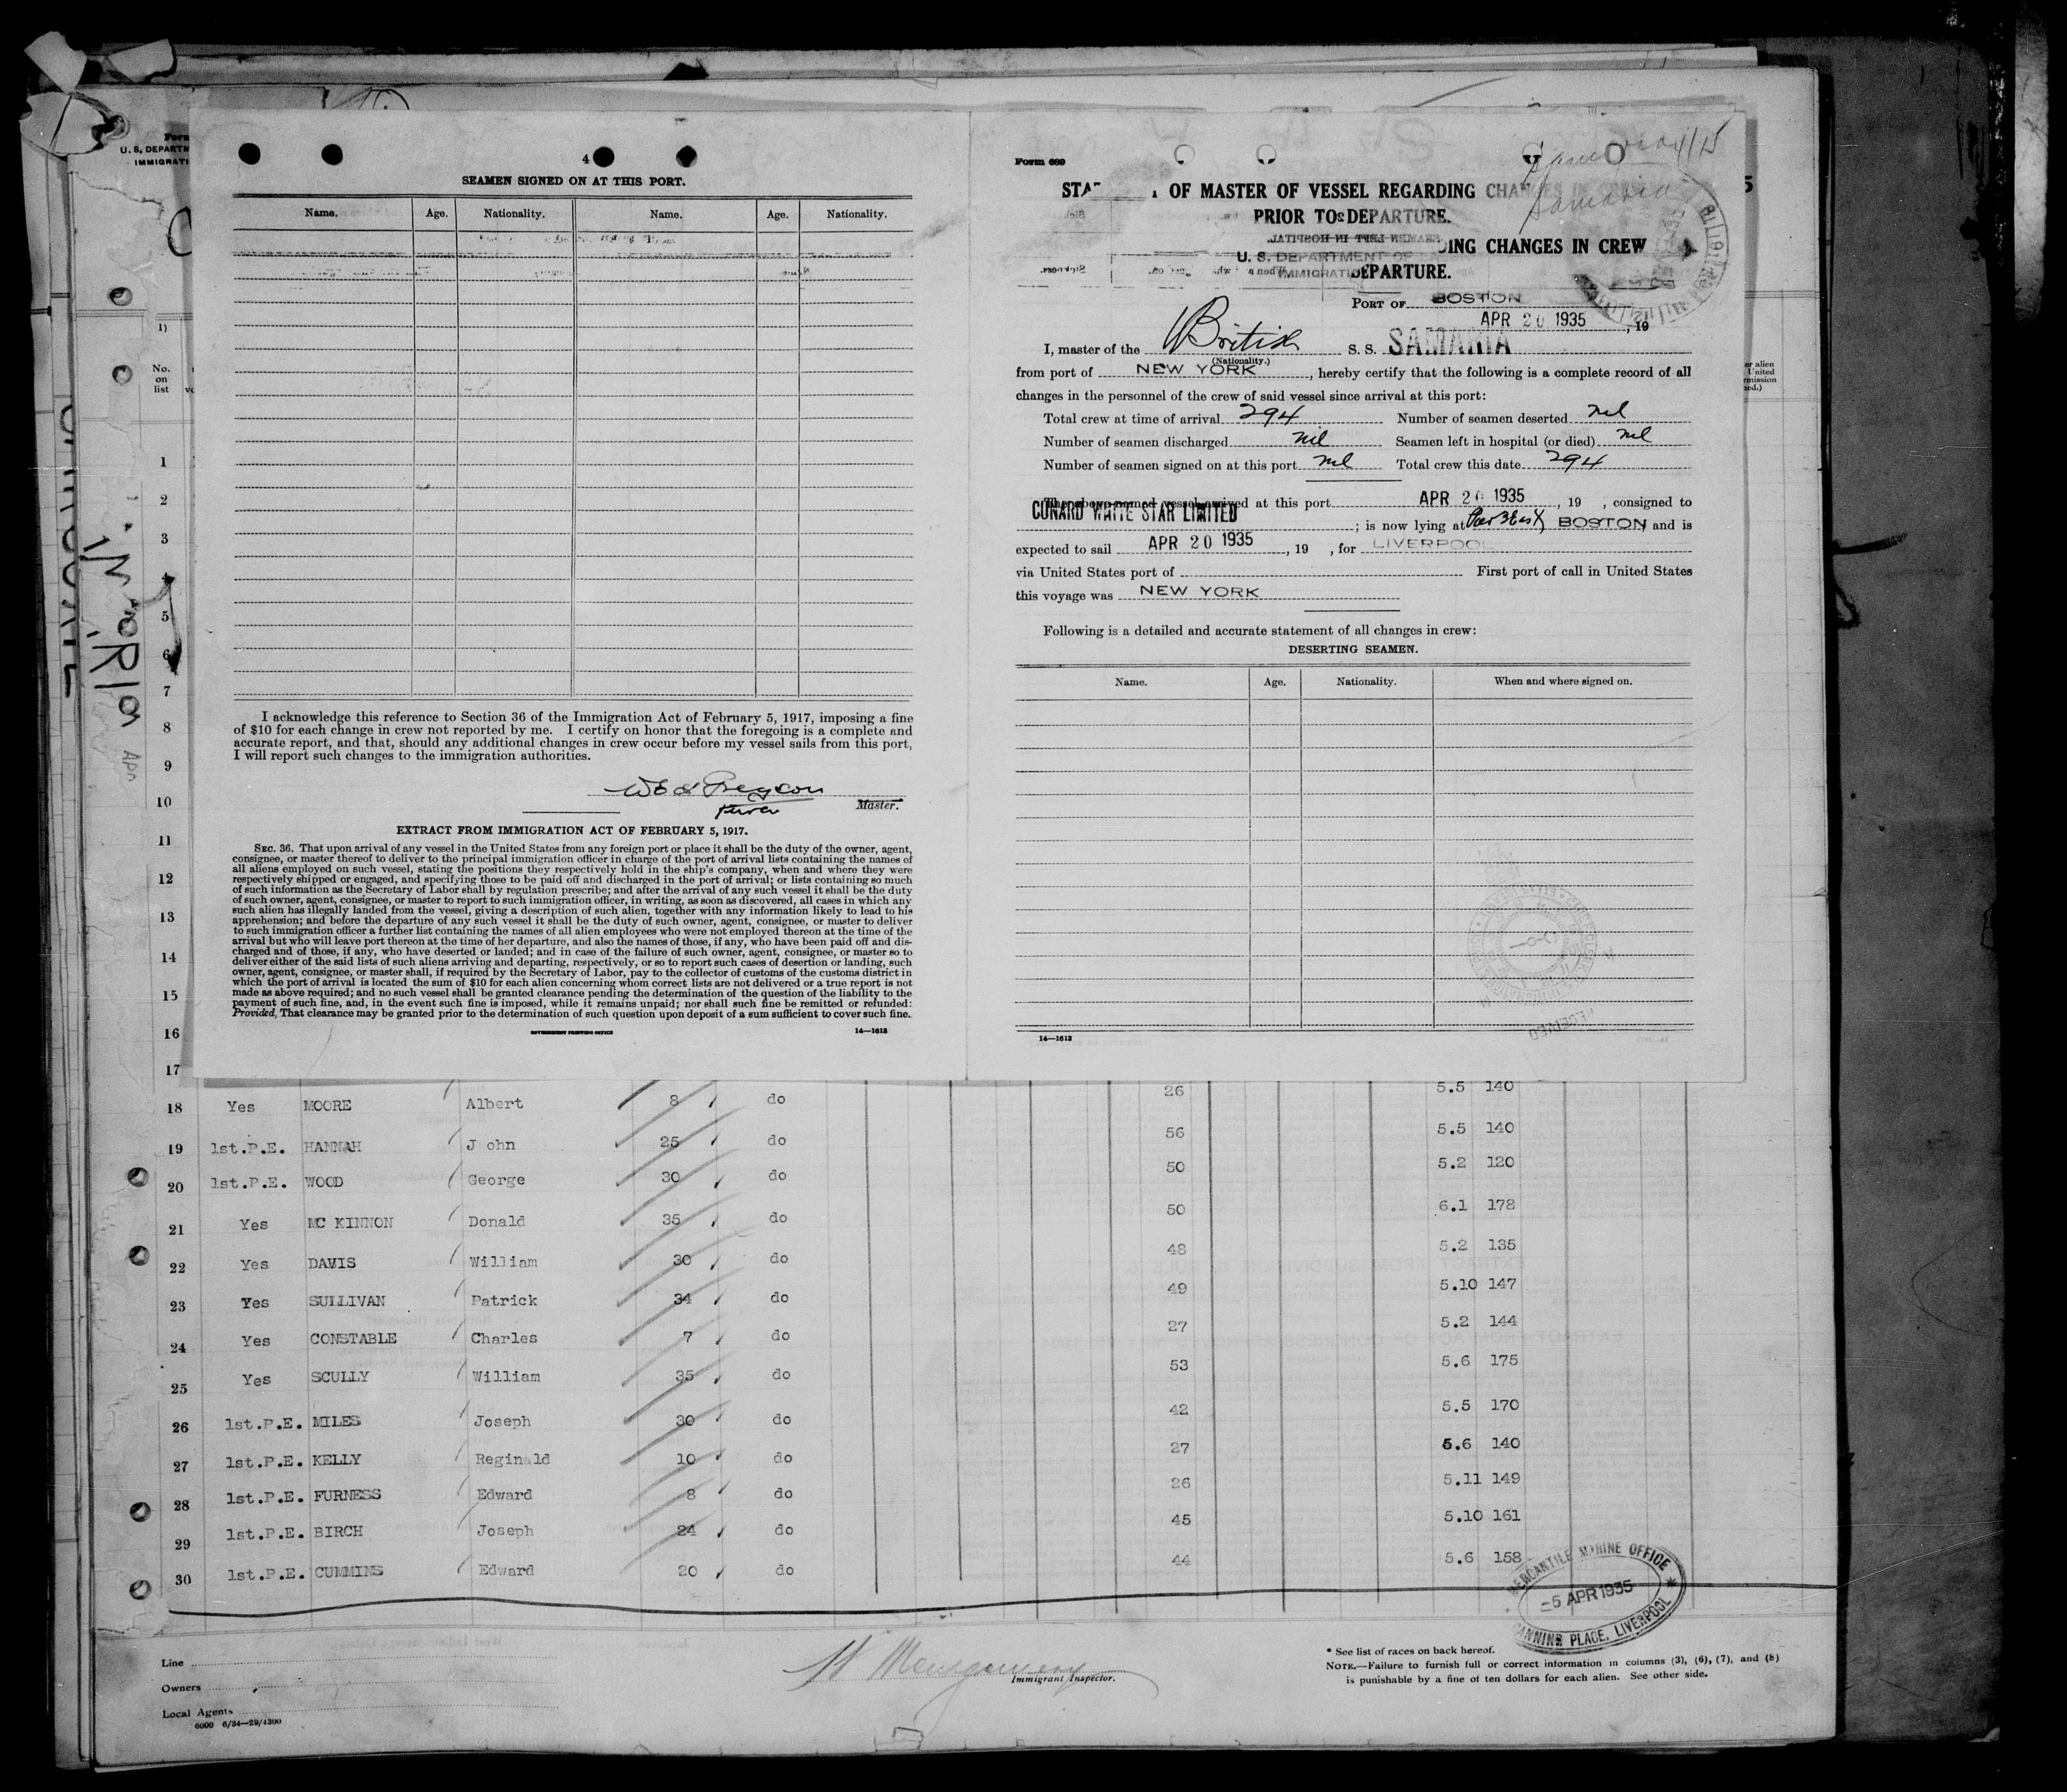 4
SEAMEN SIGNED ON AT THIS PORT.
Name. Age. Nationality. Name. Age. Nationality.
I acknowledge this reference to Section 36 of the Immigration Act of February 5, 1917, imposing a fine
of $10 for each change in crew not reported by me. I certify on honor that the foregoing is a complete and
accurate report, and that, should any additional changes in crew occur before my vessel sails from this port,
I will report such changes to the immigration authorities.
Master.
EXTRACT FROM IMMIGRATION ACT OF FEBRUARY 5, 1917.
SEC. 36. That upon arrival of any vessel in the United States from any foreign port or place it shall be the duty of the owner, agent,
consignee, or master thereof to deliver to the principal immigration officer in charge of the port of arrival lists containing the names of
all aliens employed on such vessel, stating the positions they respectively hold in the ship's company, when and where they were
respectively shipped or engaged, and specifying those to be paid off and discharged in the port of arrival; or lists containing so much
of such information as the Secretary of Labor shall by regulation prescribe; and after the arrival of any such vessel it shall be the duty
of such owner, agent, consignee, or master to report to such immigration officer, in writing, as soon as discovered, all cases in which any
such alien has illegally landed from the vessel, giving a description of such alien, together with any information likely to lead to his
apprehension; and before the departure of any such vessel it shall be the duty of such owner, agent, consignee, or master to deliver
to such immigration officer a further list containing the names of all alien employees who were not employed thereon at the time of the
arrival but who will leave port thereon at the time of her departure, and also the names of those, if any, who have been paid off and dis-
charged and of those, if any, who have deserted or landed; and in case of the failure of such owner, agent, consignee, or master so to
deliver either of the said lists of such aliens arriving and departing, respectively, or so to report such cases of desertion or landing, such
owner, agent, consignee, or master shall, if required by the Secretary of Labor, pay to the collector of customs of the customs district in
which the port of arrival is located the sum of $10 for each alien concerning whom correct lists are not delivered or a true report is not
made as above required; and no such vessel shall be granted clearance pending the determination of the question of the liability to the
payment of such fine, and, in the event such fine is imposed, while it remains unpaid; nor shall such fine be remitted or refunded:
Provided, That clearance may be granted prior to the determination of such question upon deposit of a sum sufficient to cover such fine.
GOVERNMENT PRINTING OFFICE 14—1613
Form 689
OF MASTER OF VESSEL REGARDING CHANGES IN
PRIOR TO DEPARTURE.
U. S. DEPARTMENT OF
ING CHANGES IN CREW
DEPARTURE.
PORT OF BOSTON
APR 20 1935, 19
I, master of the British S. S. SAMARIA
(Nationality.)
from port of NEW YORK, hereby certify that the following is a complete record of all
changes in the personnel of the crew of said vessel since arrival at this port:
Total crew at time of arrival 294 Number of seamen deserted nil
Number of seamen discharged nil Seamen left in hospital (or died) nil
Number of seamen signed on at this port nil Total crew this date 294
The above-named vessel arrived at this port APR 20 1935, 19 , consigned to
CUNARD WHITE STAR LIMITED; is now lying at BOSTON and is
expected to sail APR 20 1935, 19 , for LIVERPOOL
via United States port of First port of call in United States
this voyage was NEW YORK
Following is a detailed and accurate statement of all changes in crew:
DESERTING SEAMEN.
Name. Age. Nationality. When and where signed on.
14—1613
Form
U. S. DEPARTM
IMMIGRATI
No. on list
1
2
3
4
5
6
7
8
9
10
11
12
13
14
15
16
17 26 5.5 140
18 Yes MOORE Albert 8 do 56 5.5 140
19 1st.P.E. HANNAH John 25 do 50 5.2 120
20 1st.P.E. WOOD George 30 do 50 6.1 178
21 Yes MC KINNON Donald 35 do 48 5.2 135
22 Yes DAVIS William 30 do 49 5.10 147
23 Yes SULLIVAN Patrick 34 do 27 5.2 144
24 Yes CONSTABLE Charles 7 do 53 5.6 175
25 Yes SCULLY William 35 do 42 5.5 170
26 1st.P.E. MILES Joseph 30 do 27 5.6 140
27 1st.P.E. KELLY Reginald 10 do 26 5.11 149
28 1st.P.E. FURNESS Edward 8 do 45 5.10 161
29 1st.P.E. BIRCH Joseph 24 do 44 5.6 158
30 1st.P.E. CUMMINS Edward 20 do
MERCANTILE MARINE OFFICE
-5 APR 1935
CANNING PLACE, LIVERPOOL
Line
Owners
Local Agents
6000 6/34—29/4300
Montgomery
Immigrant Inspector.
* See list of races on back hereof.
NOTE.—Failure to furnish full or correct information in columns (3), (6), (7), and (8)
is punishable by a fine of ten dollars for each alien. See other side.